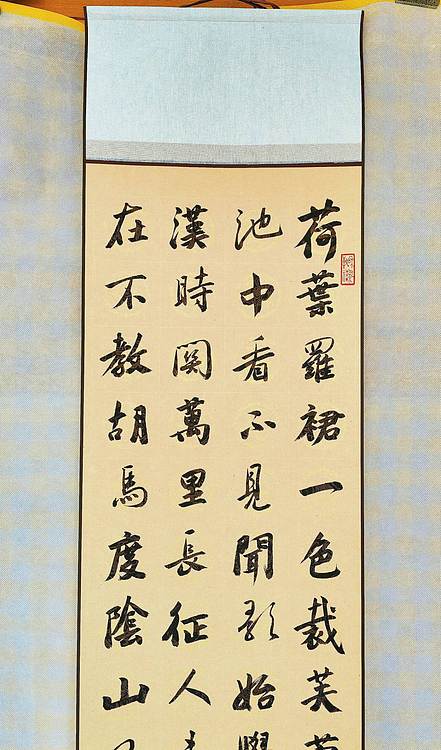 荷葉羅裙一色裁芙
池中看不見聞歌始
漢時關萬里長征人
在不教胡馬度陰山